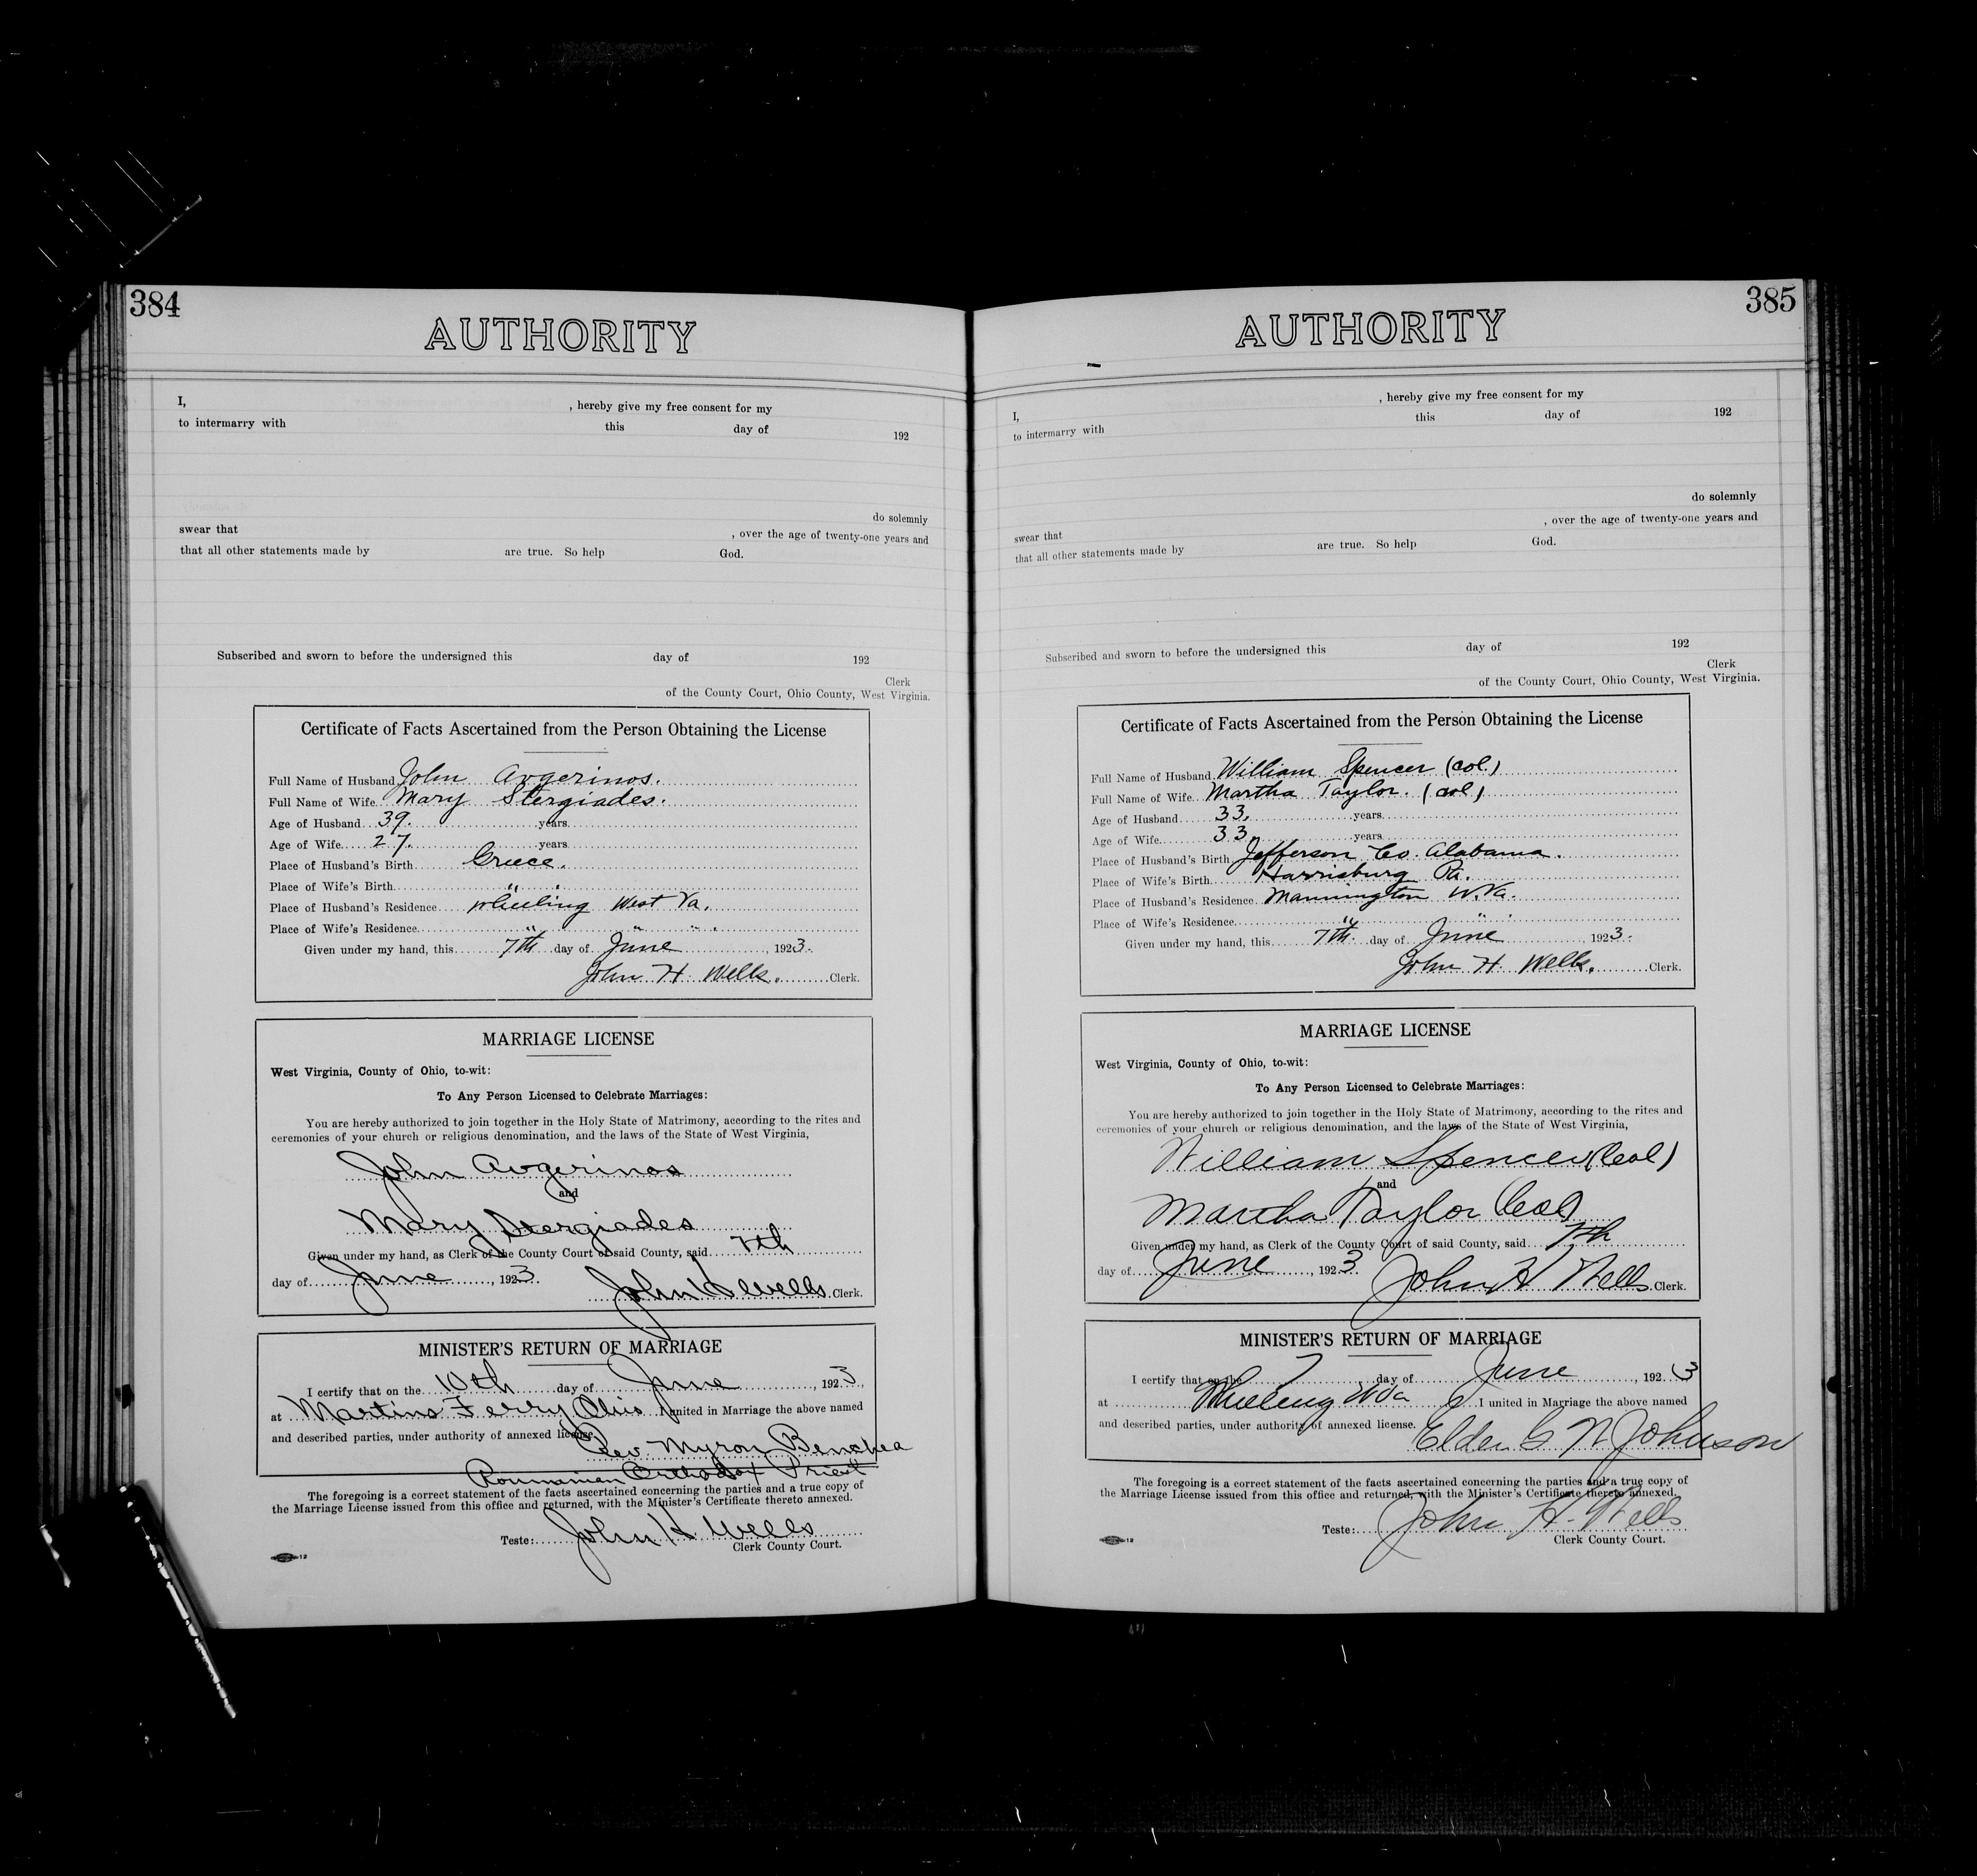 384
AUTHORITY
I, , hereby give my free consent for my
to intermarry with this day of 192
do solemnly
swear that , over the age of twenty-one years and
that all other statements made by are true. So help God.
Subscribed and sworn to before the undersigned this day of 192
Clerk
of the County Court, Ohio County, West Virginia.
Certificate of Facts Ascertained from the Person Obtaining the License
Full Name of Husband John Avgerinos.
Full Name of Wife Mary Stergiades.
Age of Husband 39. years
Age of Wife 27. years
Place of Husband's Birth Greece.
Place of Wife's Birth " .
Place of Husband's Residence Wheeling West Va.
Place of Wife's Residence " " " .
Given under my hand, this 7th day of June, 1923.
John H. Wells. Clerk.
MARRIAGE LICENSE
West Virginia, County of Ohio, to-wit:
To Any Person Licensed to Celebrate Marriages:
You are hereby authorized to join together in the Holy State of Matrimony, according to the rites and
ceremonies of your church or religious denomination, and the laws of the State of West Virginia,
John Avgerinos
and
Mary Stergiades
Given under my hand, as Clerk of the County Court of said County, said 7th
day of June, 1923.
John H Wells Clerk.
MINISTER'S RETURN OF MARRIAGE
I certify that on the 10th day of June, 1923,
at Martins Ferry Ohio I united in Marriage the above named
and described parties, under authority of annexed license.
Rev. Myron Benchea
Roumanian Orthodox Priest
The foregoing is a correct statement of the facts ascertained concerning the parties and a true copy of
the Marriage License issued from this office and returned, with the Minister's Certificate thereto annexed.
Teste: John H Wells
Clerk County Court.
12
385
AUTHORITY
I, , hereby give my free consent for my
to intermarry with this day of 192
do solemnly
swear that , over the age of twenty-one years and
that all other statements made by are true. So help God.
Subscribed and sworn to before the undersigned this day of 192
Clerk
of the County Court, Ohio County, West Virginia.
Certificate of Facts Ascertained from the Person Obtaining the License
Full Name of Husband William Spencer (col.)
Full Name of Wife Martha Taylor. (col)
Age of Husband 33. years
Age of Wife 33. years
Place of Husband's Birth Jefferson Co. Alabama.
Place of Wife's Birth Harrisburg Pa.
Place of Husband's Residence Mannington W.Va.
Place of Wife's Residence " " .
Given under my hand, this 7th day of June, 1923.
John H. Wells. Clerk.
MARRIAGE LICENSE
West Virginia, County of Ohio, to-wit:
To Any Person Licensed to Celebrate Marriages:
You are hereby authorized to join together in the Holy State of Matrimony, according to the rites and
ceremonies of your church or religious denomination, and the laws of the State of West Virginia,
William Spencer (Col)
and
Martha Taylor (Col)
Given under my hand, as Clerk of the County Court of said County, said 7th
day of June, 1923.
John H Wells Clerk.
MINISTER'S RETURN OF MARRIAGE
I certify that on the 7 day of June, 1923
at Wheeling W Va I united in Marriage the above named
and described parties, under authority of annexed license.
Elder C N Johnson
The foregoing is a correct statement of the facts ascertained concerning the parties and a true copy of
the Marriage License issued from this office and returned, with the Minister's Certificate thereto annexed.
Teste: John H. Wells
Clerk County Court.
12